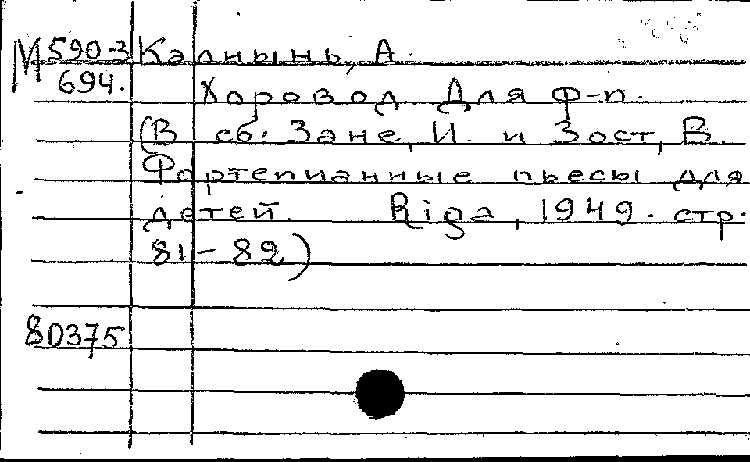 М 590-3 Калнынь, А.
694. Хоровод. Для ф-п.
(В сб. Зане, И. и Зост, В.
Фортепианные пьесы для
детей. Riga, 1949. стр.
81-82)
80375